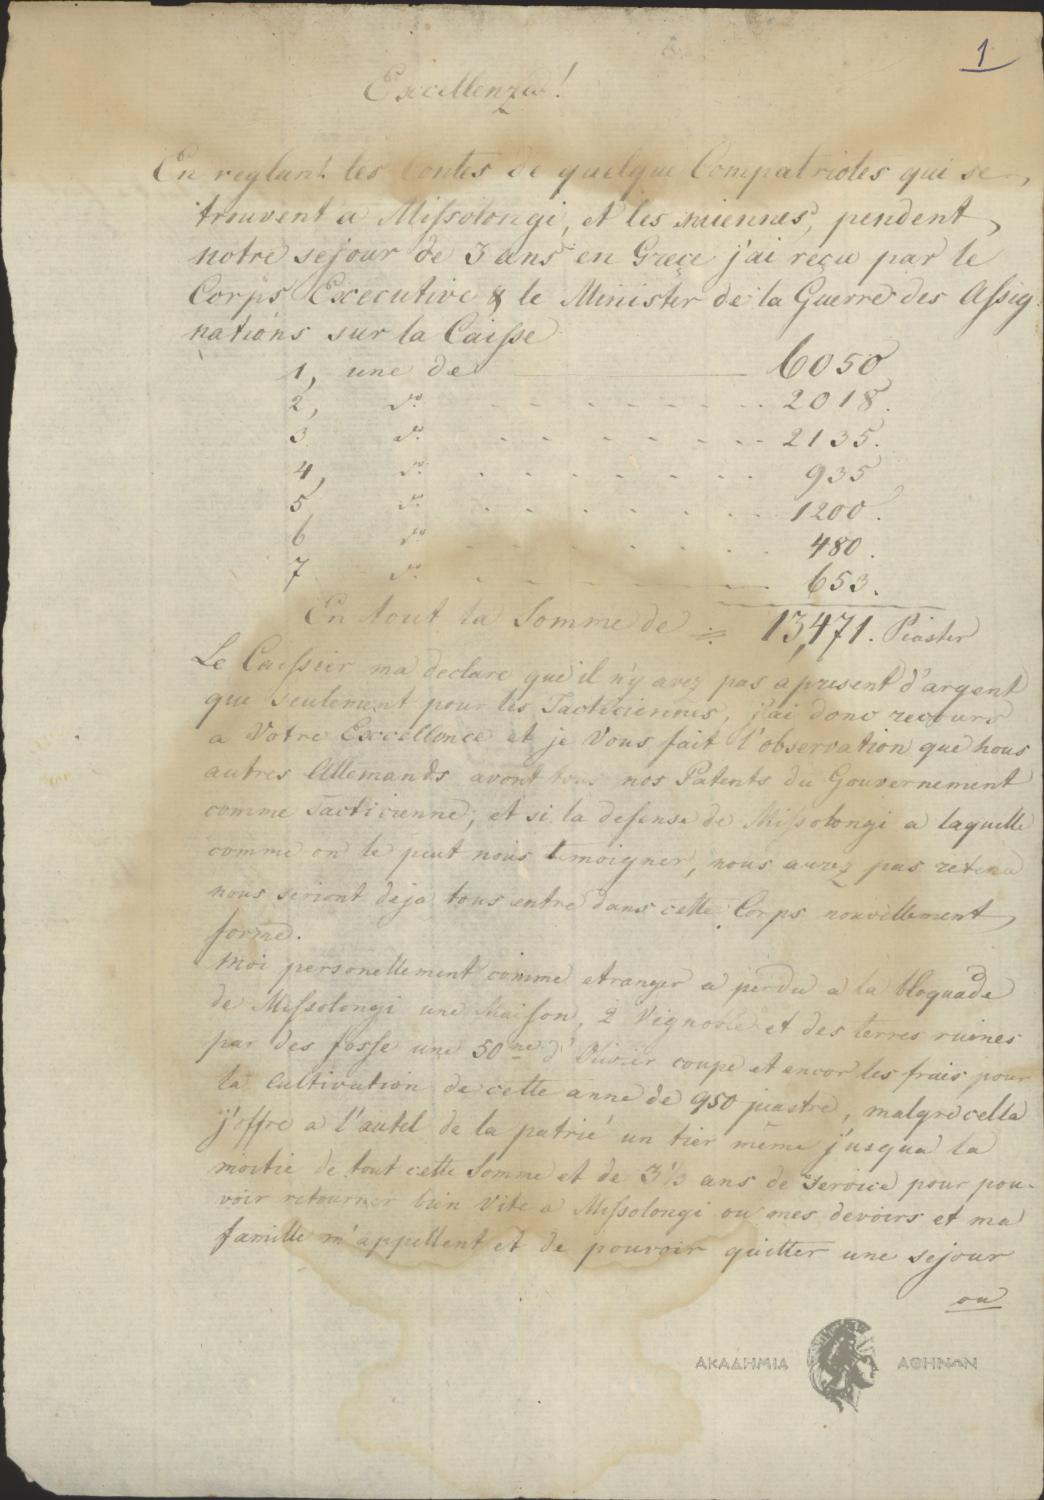 1
Excellenza!
En reglant les Contes de quelque Compatriotes qui se
trouvent a Missolongi, et les miennes, pendent
notre sejour de 3 ans en Grece j'ai reçu par le
Corps Executive & le Minister de la Guerre des Assig-
nations sur la Caisse
1, une de 6050
2, do. 2018.
3 do. 2135.
4, do. 935
5 do. 1200.
6 do. 480.
7 do. 653.
En tout la Somme de 13,471. Piaster
Le Caissier ma declare que il n'y avez pas apresent d'argent
que seulement pour les Tacticiennes, j'ai donc recours
a Votre Excellence et je Vous fait l'observation que nous
autres Allemands avont tous nos Patents du Gouvernement
comme Tacticienne, et si la defense de Missolongi a laquelle
comme on le peut nous temoigner, nous aurez pas retenu
nous seriont deja tous entre dans cette Corps nouvellement
forme.
Moi personellement comme etranger a perdu a la bloquade
de Missolongi une Maison, 2 Vignoble et des terres ruines
par des fosse une 50ne d'Olivier coupe et encor les frais pour
la Cultivation de cette anne de 950 piastre, malgre cella
j'offre a l'autel de la patrie un tier même j'usqua la
moitie de tout cette Somme et de 3 1/3 ans de service pour pou-
voir retourner bien Vite a Missolongi ou mes devoirs et ma
famille m'appellent et de pouvoir quitter une sejour
ou
ΑΚΑΔΗΜΙΑ ΑΘΗΝΩΝ